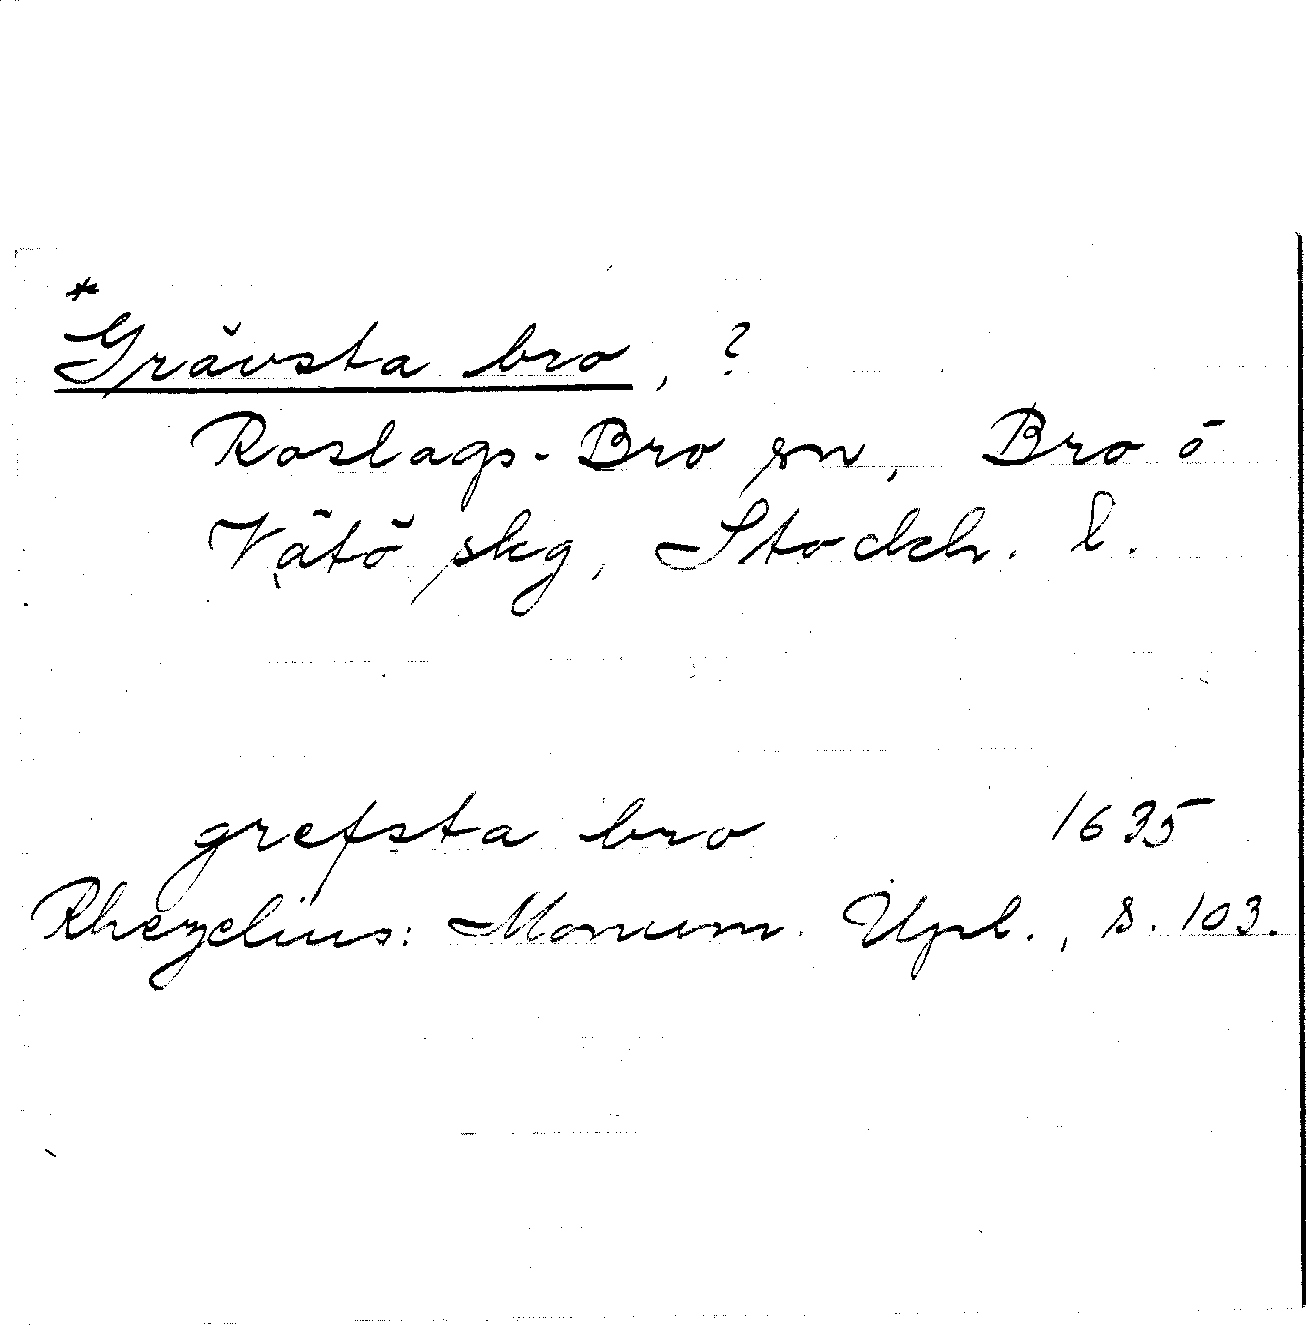 *
Grävsta bro, ?
Roslags-Bro sn, Bro o
Vätö skg, Stockh. l.
grefsta bro 1635
Rhezelius: Monum. Upl., s. 103.